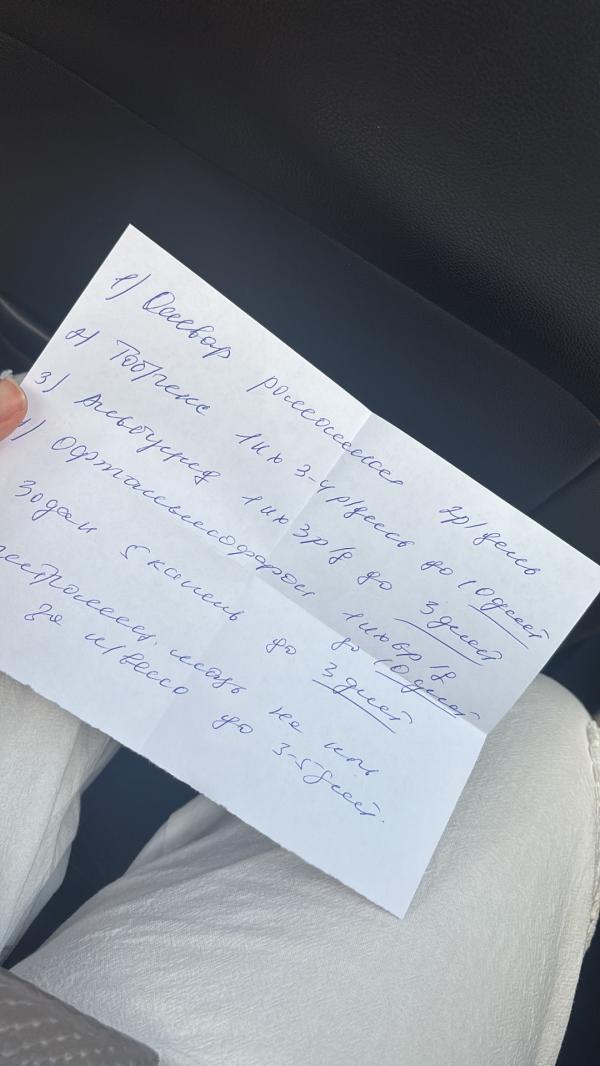 1) Отвар ромашки 2р/день
2) Тобрекс 1 и к 3-4 р/день до 10 дней
3) Альбуцид 1 и к 3р/д до 3 дней
4) Офтальмоферон 1 и к 6р/д до 10 дней
Зодак 5 капель до 3 дней
мазь на
за и/веко до 3-5 дней.